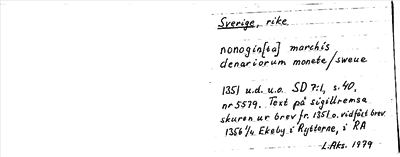 Sverige, rike
nonogin[ta] marchis
denariorum monete/sweue
1351 u.d. u.o. SD 7:1, s. 40,
nr 5579. Text på sigillremsa
skuren ur brev fr. 1351 o. vidfäst brev
1356 Ekeby i Rytterne, i RA
L.Aks. 1979